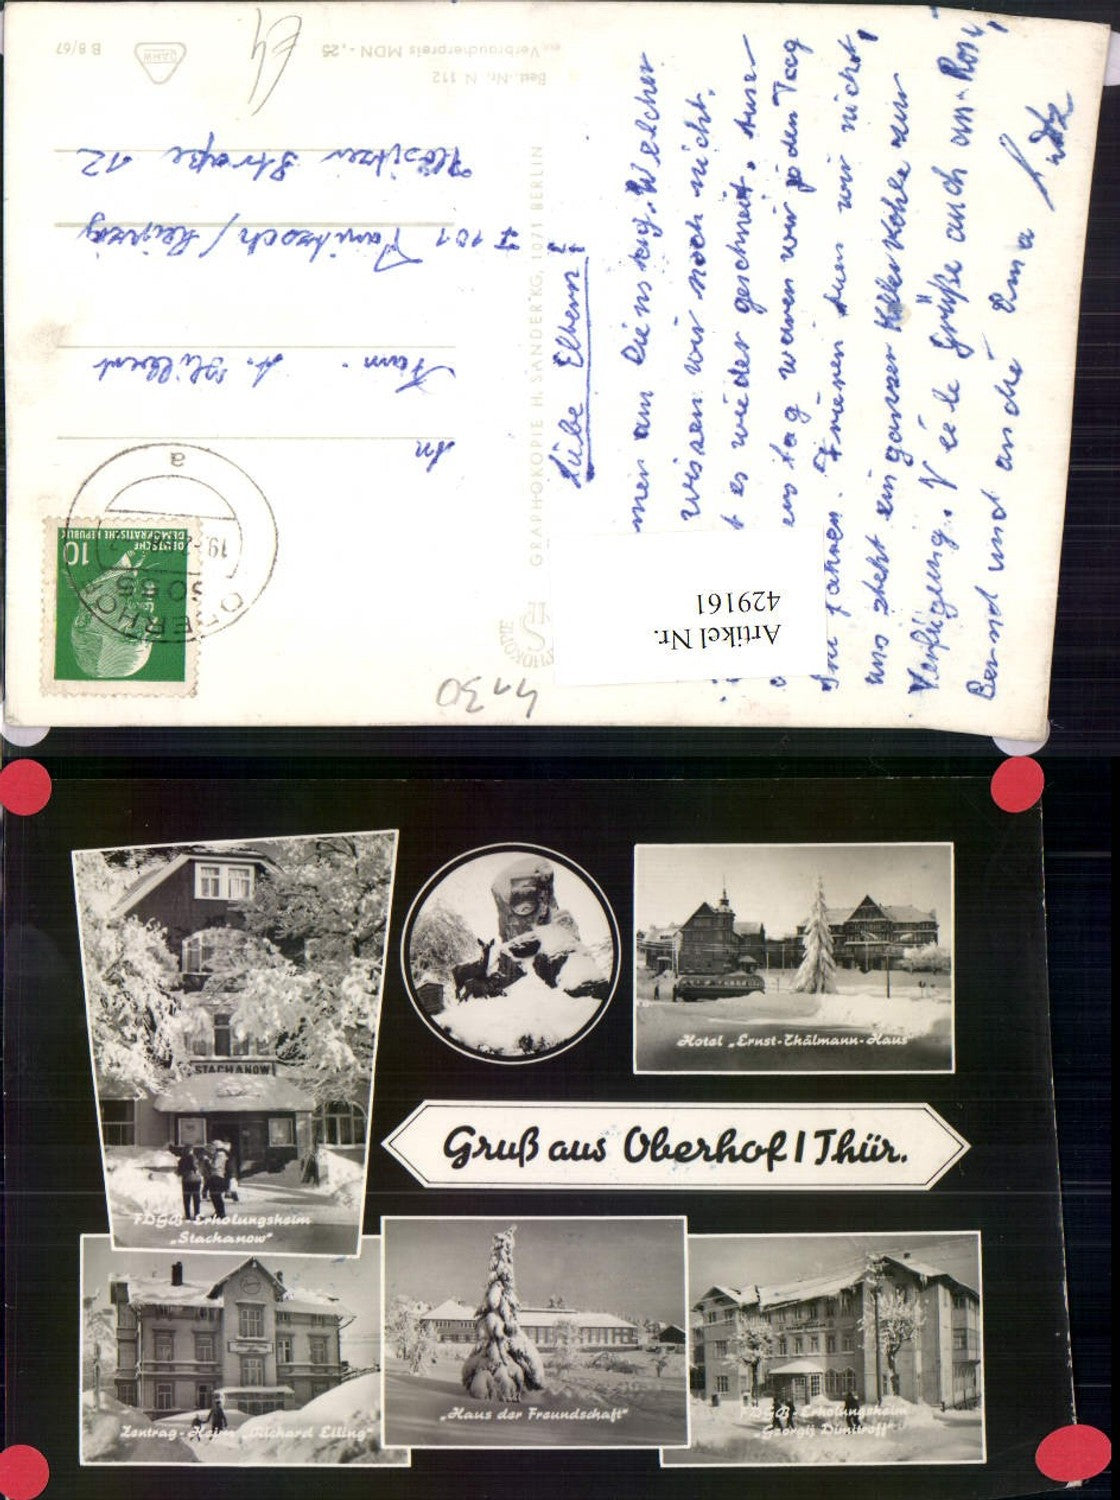 Best.-Nr. N 112
Verbraucherpreis MDN -,25
B 8/67
An
Fam.
7101 Panitzsch / Leipzig
Straße 12
GRAPHOKOPIE H. SANDER KG, 1071 BERLIN
DEUTSCHE
DEMOKRATISCHE REPUBLIK
10
OBERHOF
6055
a
4130
Liebe Eltern!
men am Dienstag. Welcher
wissen wir noch nicht.
es wieder geschneit.
tag waren wir jeden Tag
fahren. Frieren tun wir nicht,
uns steht ein ganzer Keller Kohle zur
Verfügung. Viele Grüße auch an Rosi,
Bernd und an die Oma
Artikel Nr.
429161
STACHANOW
FDGB-Erholungsheim
„Stachanow"
Hotel „Ernst-Thälmann-Haus"
Gruß aus Oberhof / Thür.
Zentrag-Heim „Richard Elling"
„Haus der Freundschaft"
FDGB-Erholungsheim
„Georgij Dimitroff"